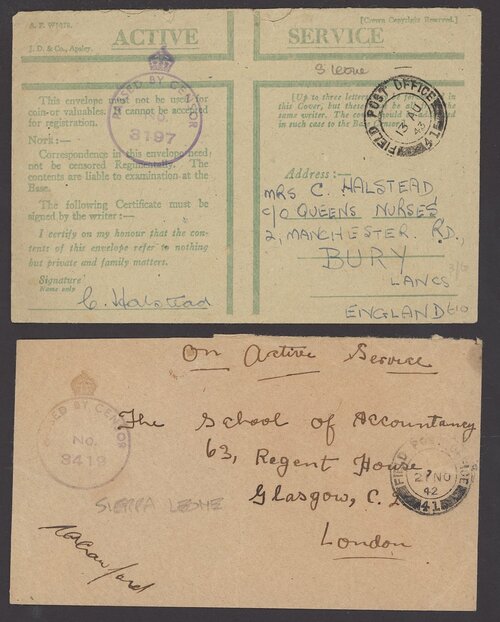 A. F. W3078.
[Crown Copyright Reserved.]
J. D. & Co., Apsley.
ACTIVE SERVICE
S leone
PASSED BY CENSOR
No.
3197
FIELD POST OFFICE
13 AU
43
This envelope must not be used for
coin or valuables. It cannot be accepted
for registration.
NOTE:—
Correspondence in this envelope need
not be censored Regimentally. The
contents are liable to examination at the
Base.
The following Certificate must be
signed by the writer:—
I certify on my honour that the con-
tents of this envelope refer to nothing
but private and family matters.
Signature
Name only
C. Halstead
[Up to three letters may be forwarded in
this Cover, but these must be all from the
same writer. The cover should be addressed
in such case to the Base Censor.
Address:—
MRS C. HALSTEAD
C/O QUEENS NURSES
2, MANCHESTER RD.,
BURY
LANCS
ENGLAND
On Active Service
PASSED BY CENSOR
No.
3419
The School of Accountancy
63, Regent House
Glasgow, C.2
London
FIELD POST OFFICE
21 NO
42
41
SIERRA LEONE